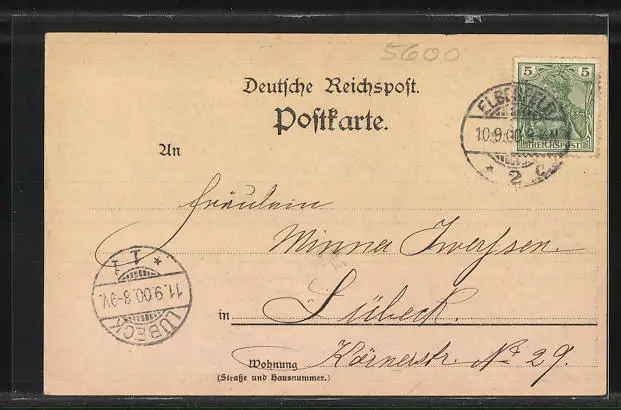 5600
Deutsche Reichspost.
Postkarte.
5 5
REICHSPOST
10.9.00
* 2 c
An
Fräulein
Minna Iwersen.
in Lübeck.
Wohnung Körnerstr. No 29.
(Straße und Hausnummer.)
* 1 1
11.9.00.8-9V.
LÜBECK